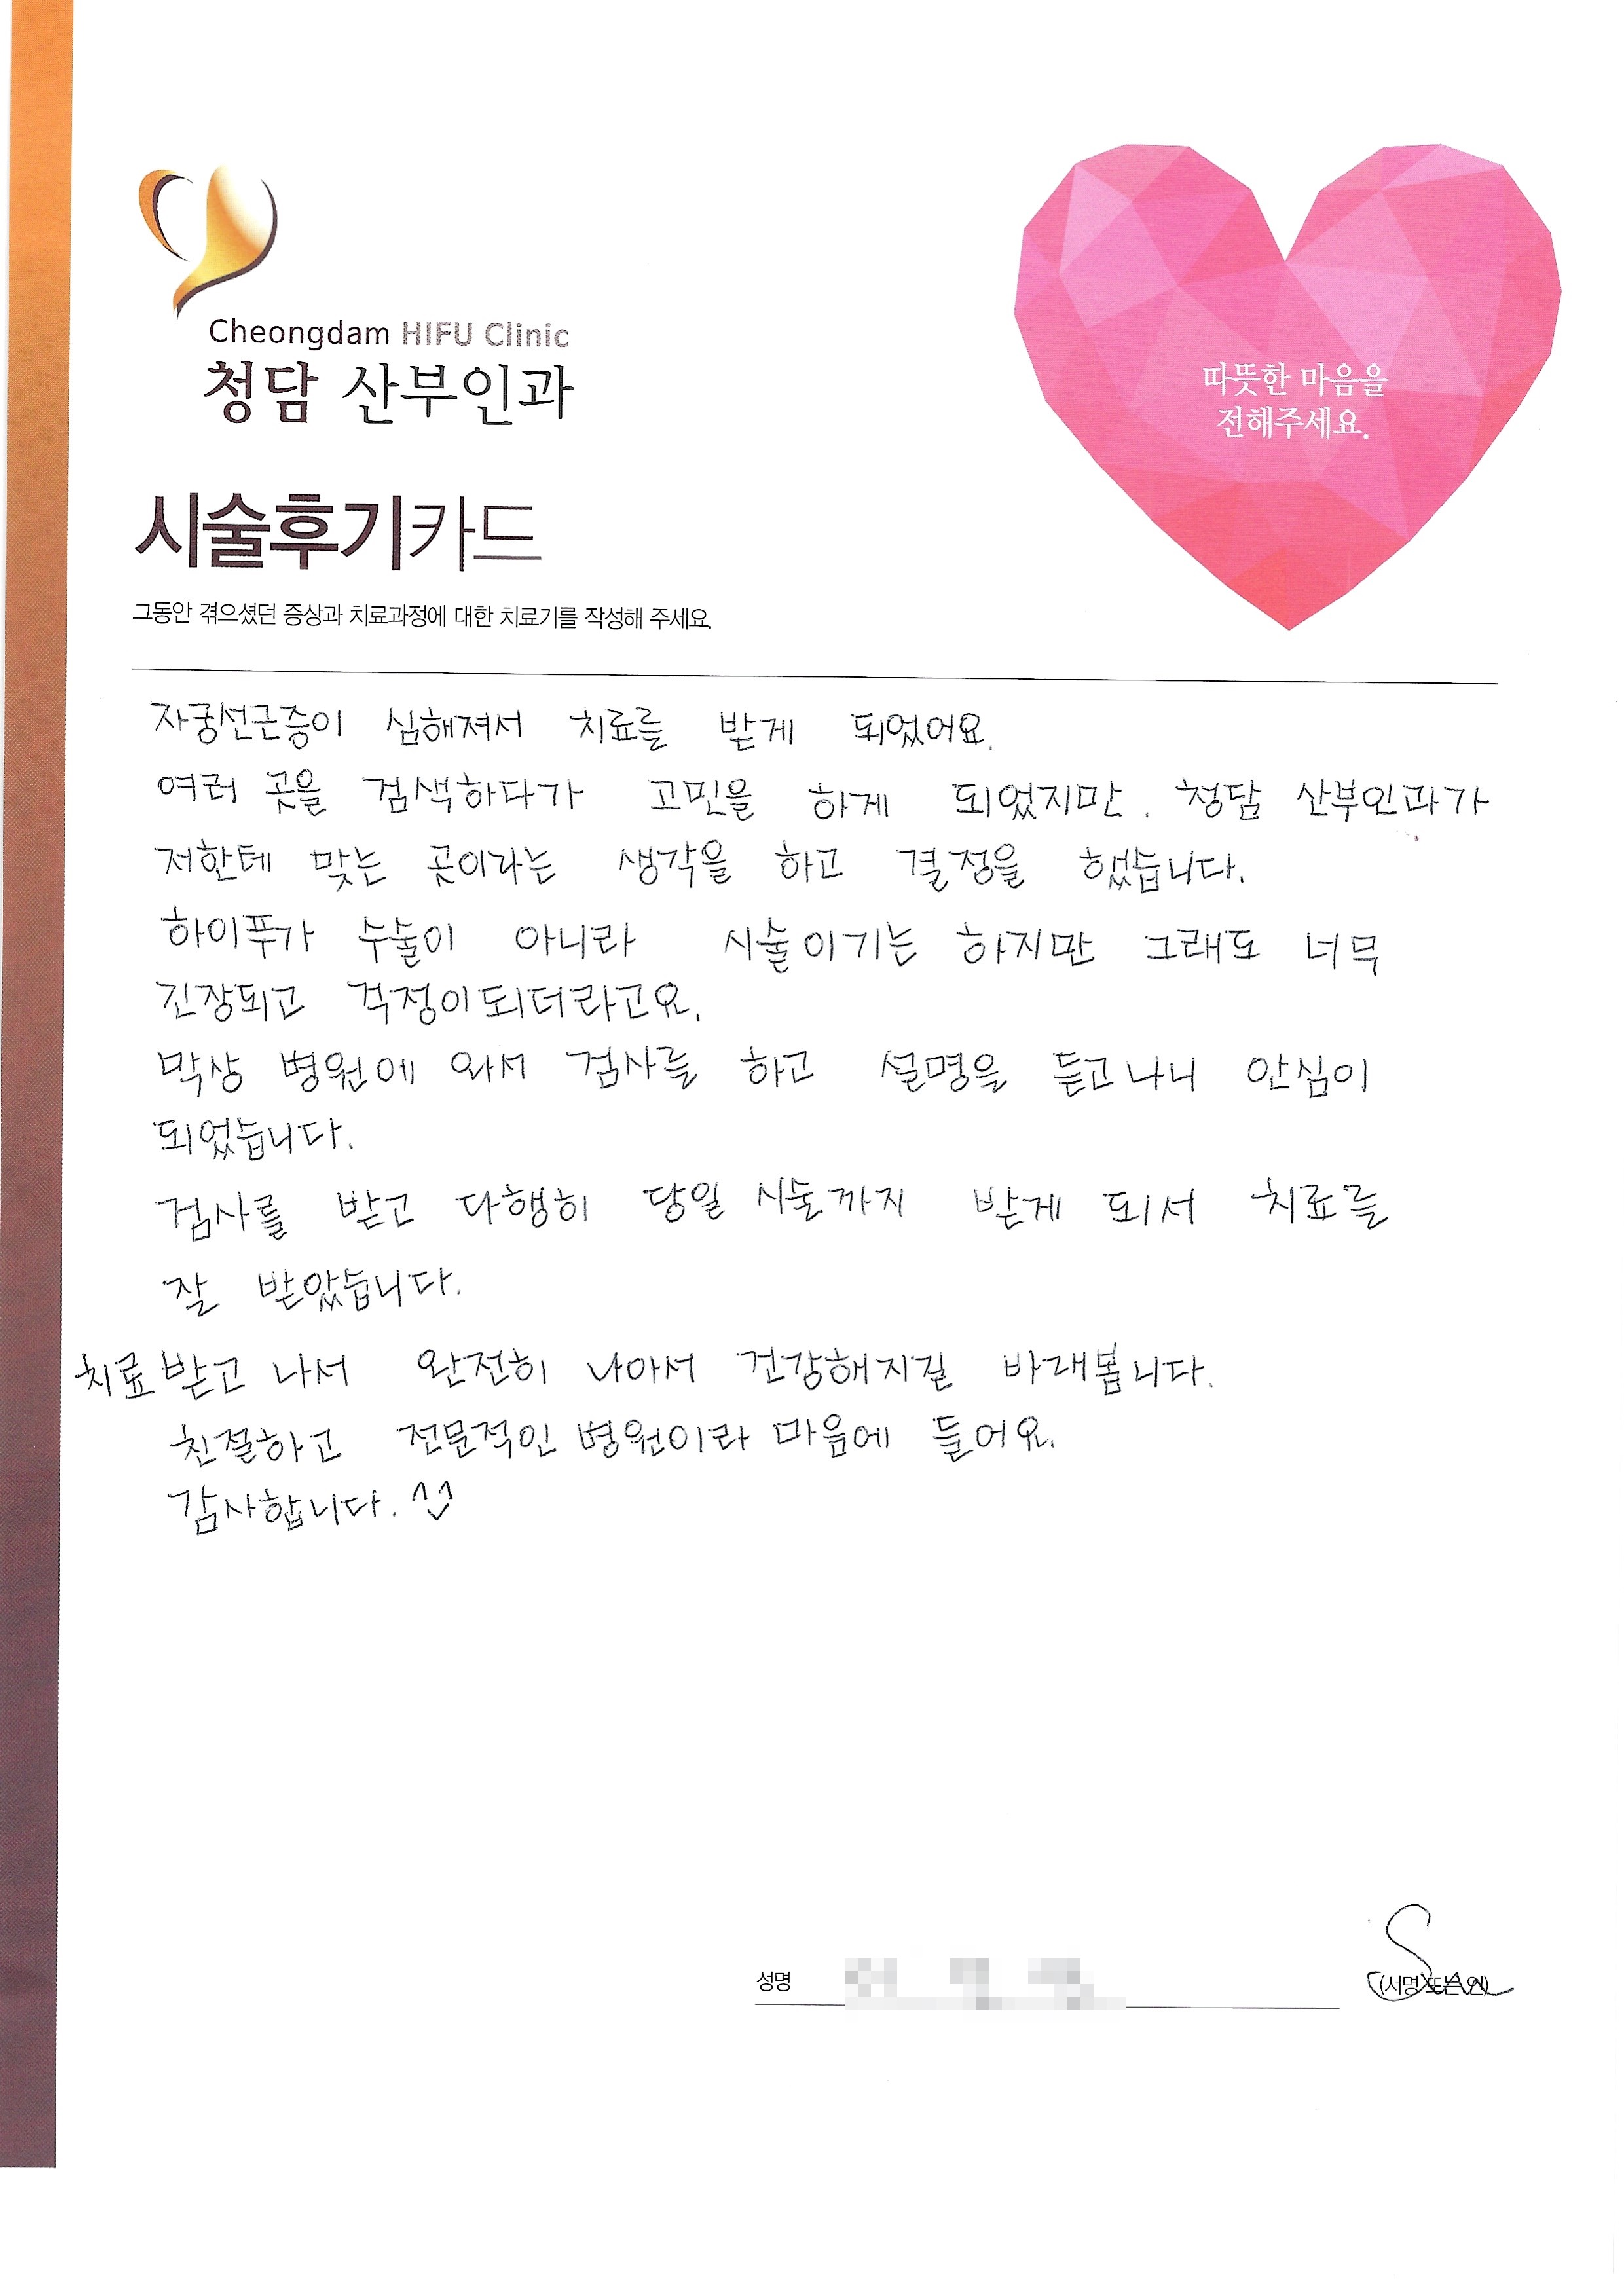 Cheongdam HIFU Clinic
청담 산부인과
따뜻한 마음을
전해주세요.
시술후기카드
그동안 겪으셨던 증상과 치료과정에 대한 치료기를 작성해 주세요.
자궁선근증이 심해져서 치료를 받게 되었어요.
여러 곳을 검색하다가 고민을 하게 되었지만. 청담 산부인과가
저한테 맞는 곳이라는 생각을 하고 결정을 했습니다.
하이푸가 수술이 아니라 시술이기는 하지만 그래도 너무
긴장되고 걱정이되더라고요.
막상 병원에 와서 검사를 하고 설명을 듣고나니 안심이
되었습니다.
검사를 받고 다행히 당일 시술까지 받게 되서 치료를
잘 받았습니다.
치료받고 나서 완전히 나아서 건강해지길 바래봅니다.
친절하고 전문적인 병원이라 마음에 들어요.
감사합니다. ^^
성명
(서명 또는 인)